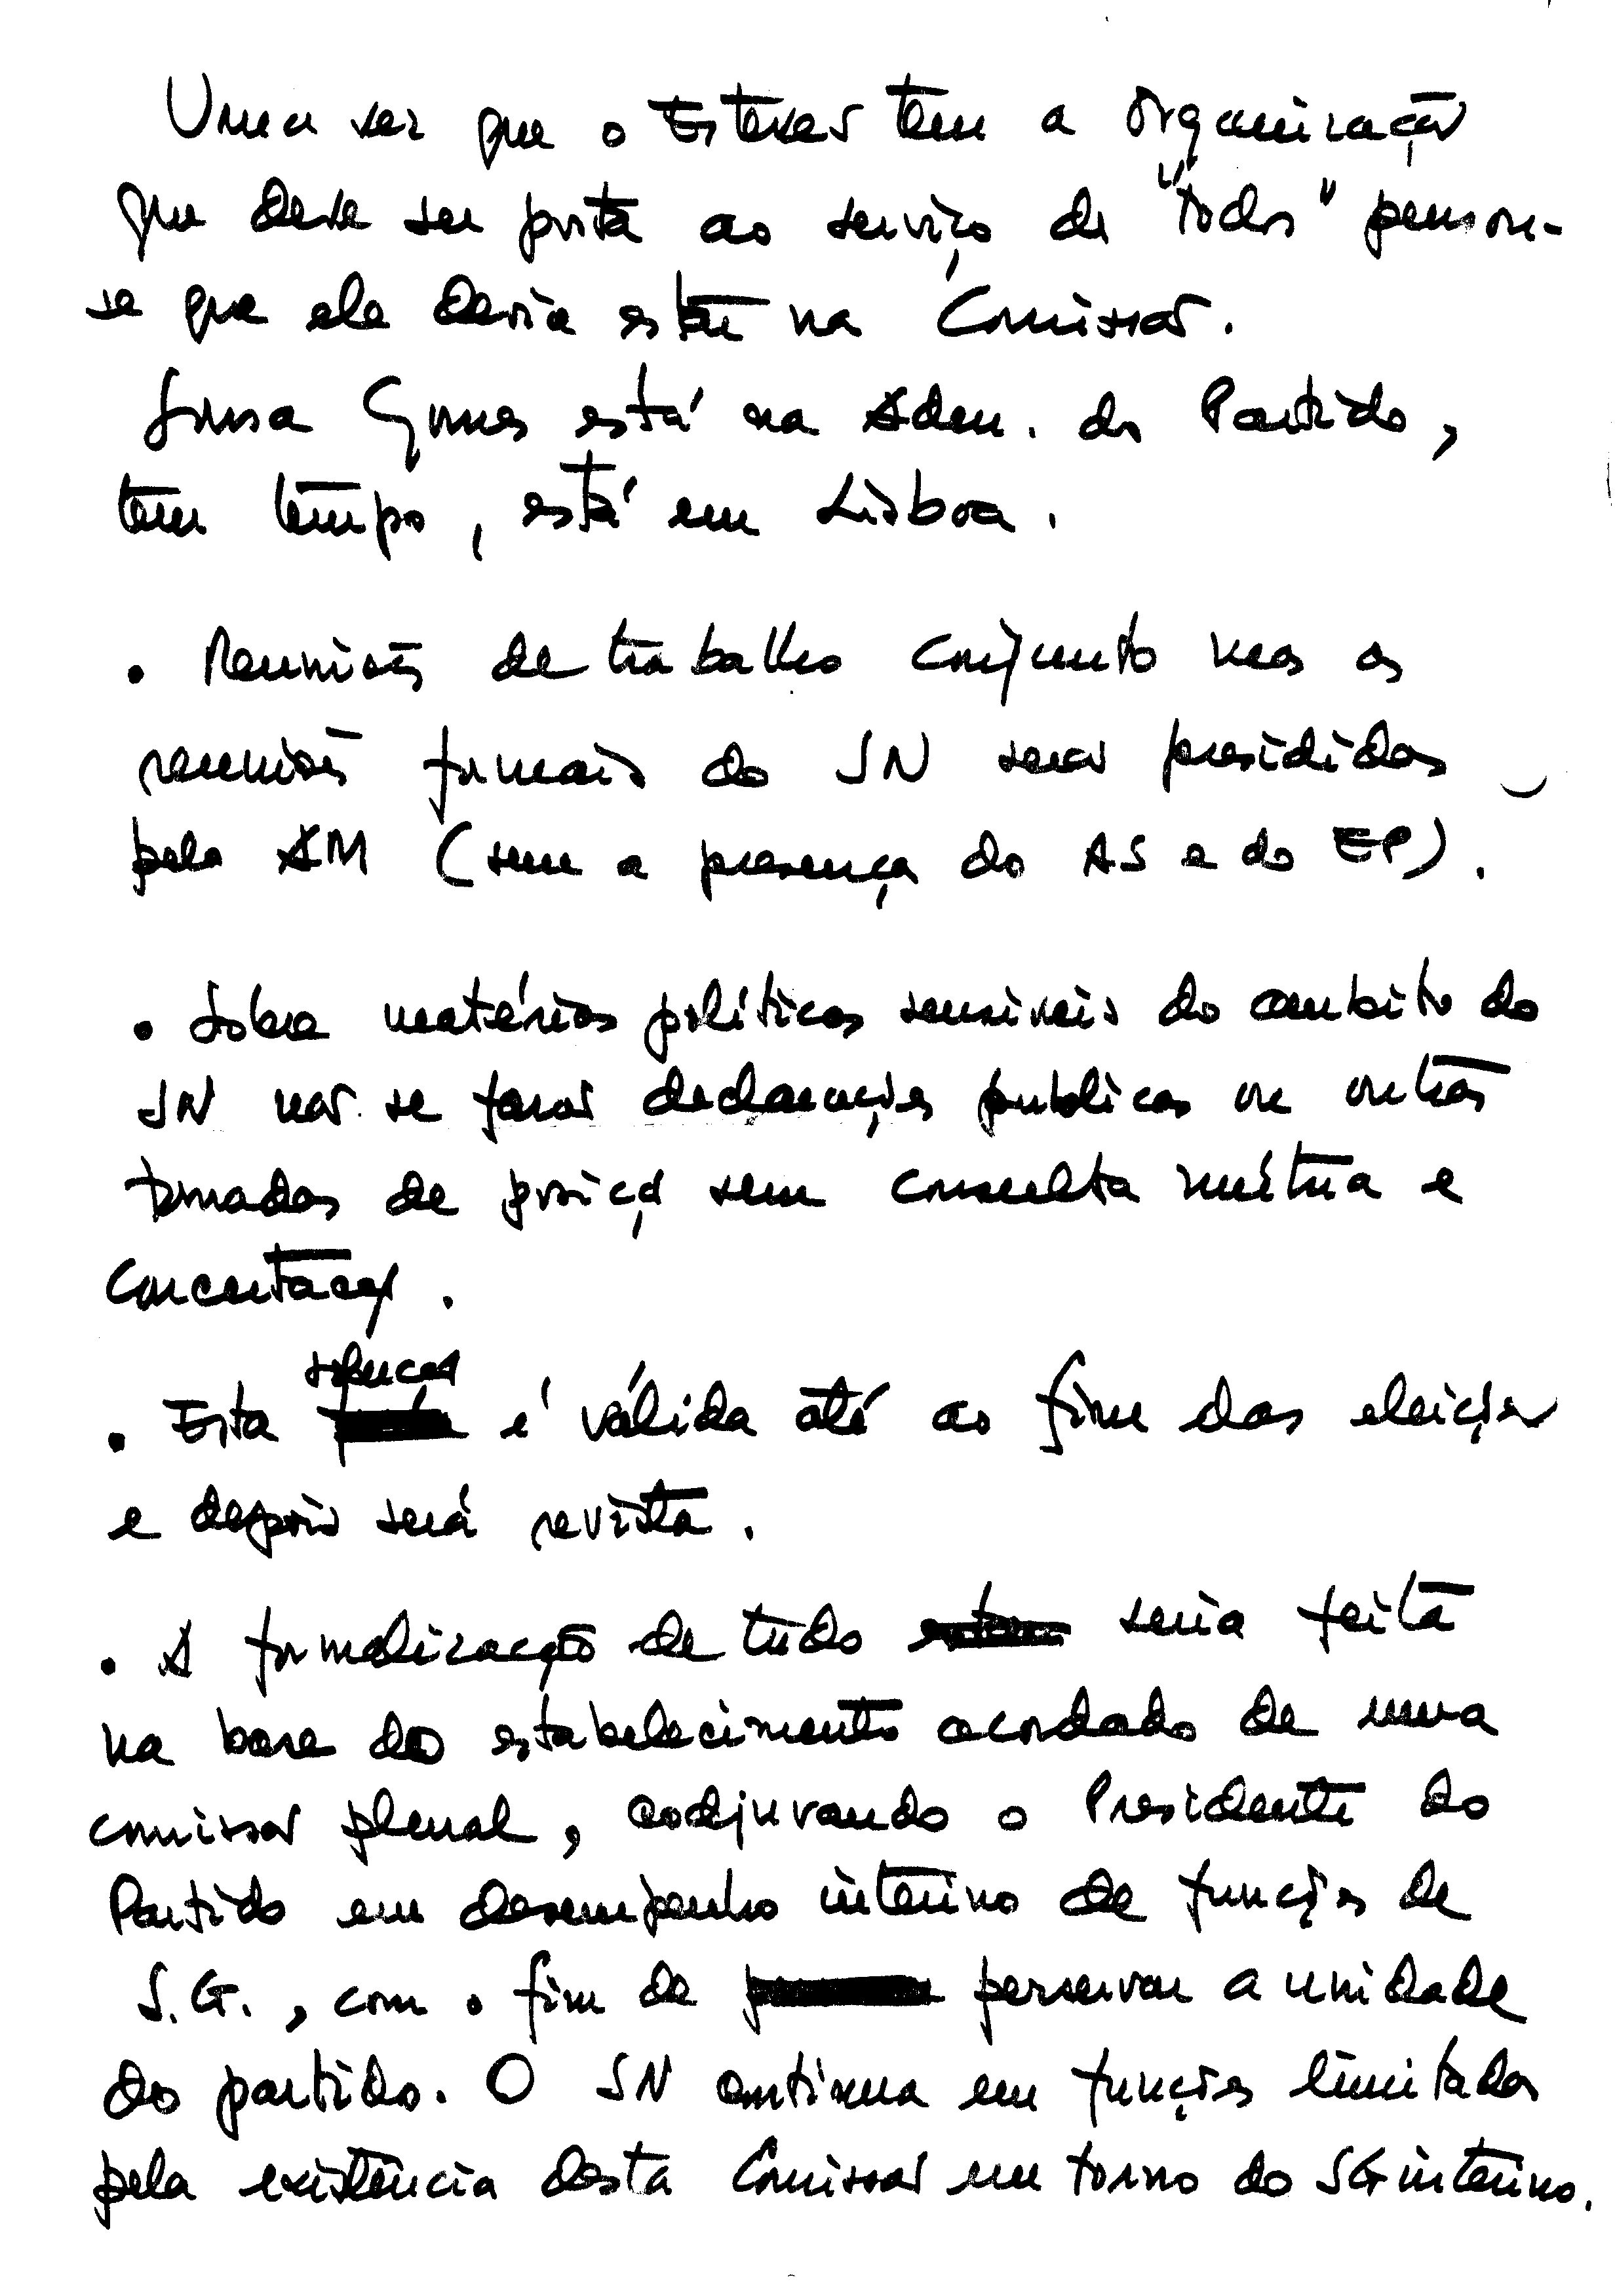 Uma vez que o Esteves tem a organização
que deve ser posta ao serviço de "todos" pensou-
se que ele devia estar na Comissão.
Sousa Gomes está na Adm. do Partido,
tem tempo, está em Lisboa.
• Reuniões de trabalho conjunto mas as
reuniões formais do SN serão presididas
pelo AM (sem a presença do AS e do EP).
• Sobre matérias políticas sensíveis do ambito do
SN não se farão declarações publicas ou outras
tomadas de posição sem consulta mútua e
Concertação.
solução
• Esta é válida até ao fim das eleições
e depois será revista.
• A formalização de tudo seria feita
na base do estabelecimento acordado de uma
comissão plural, coadjuvando o Presidente do
Partido em desempenho interino de funções de
S.G., com o fim de perservar a unidade
do partido. O SN continua em funções limitadas
pela existência desta Comissão em torno do SG interino.